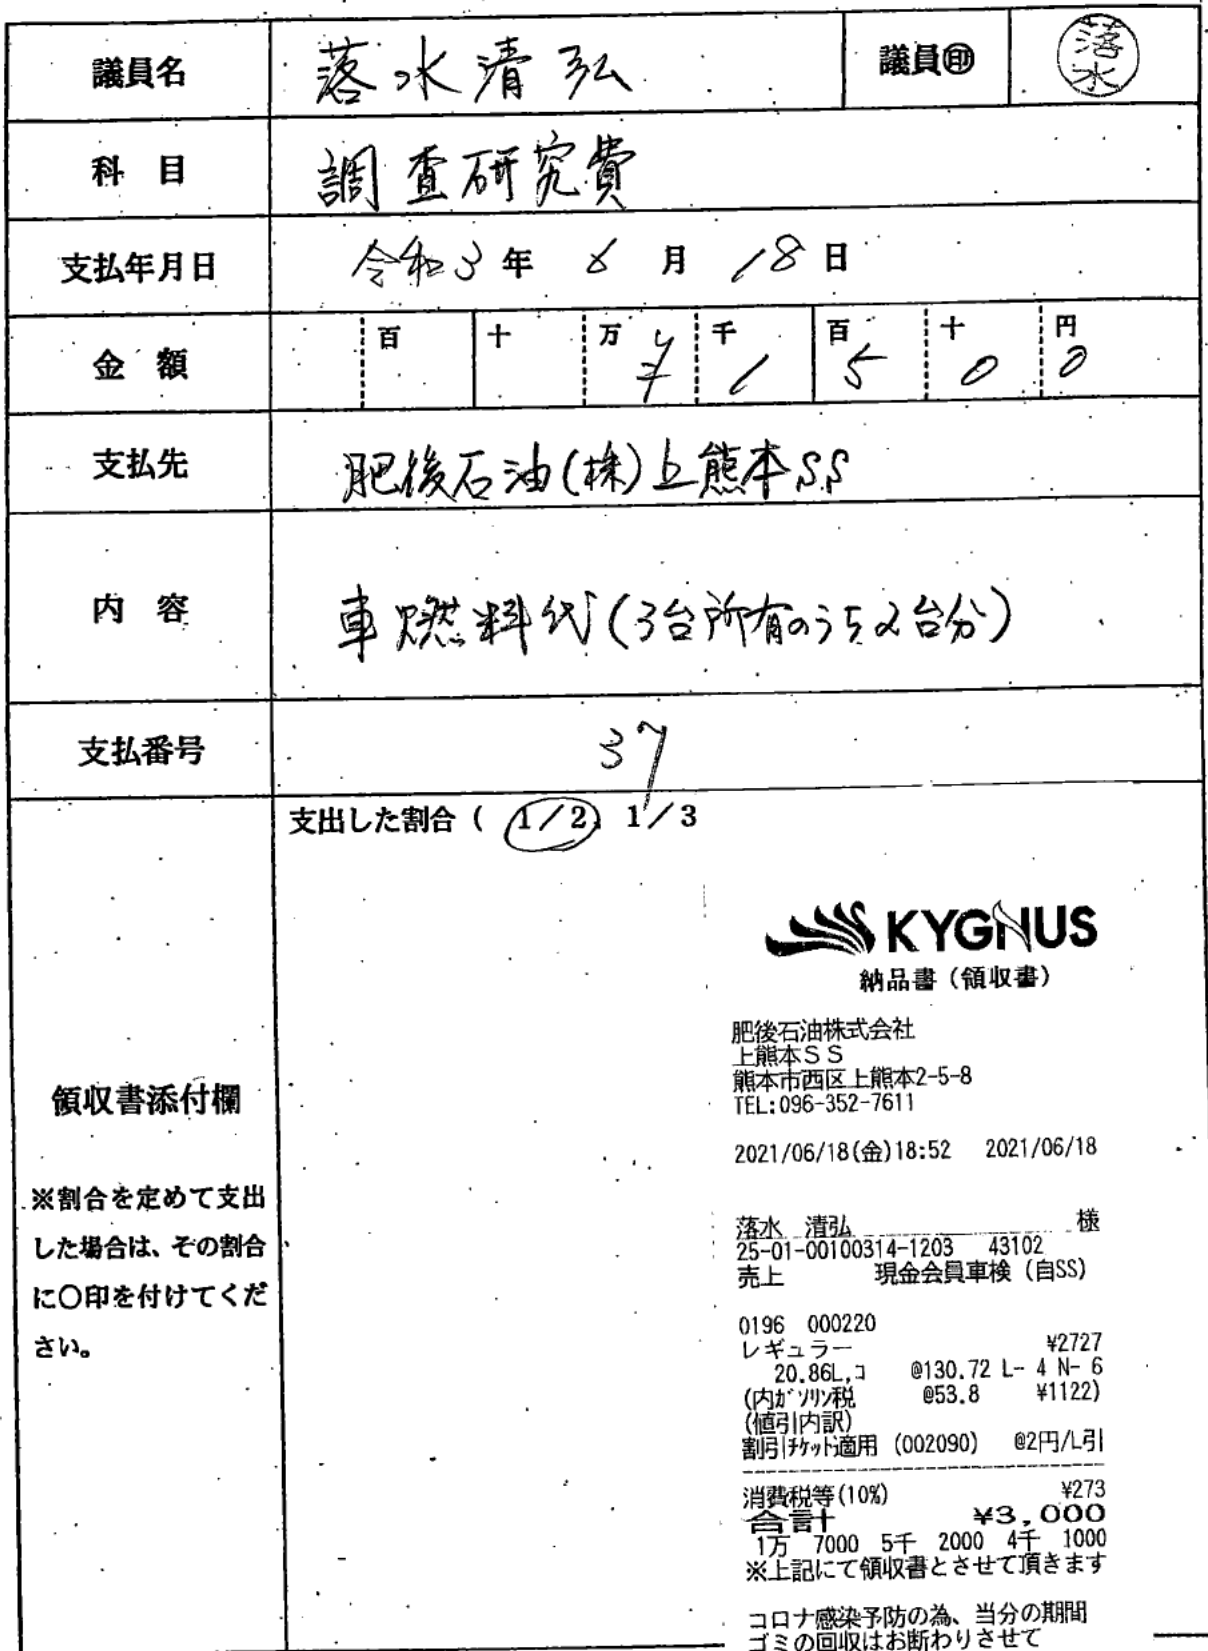 議員名 落水清弘 議員㊞ 落水
科 目 調査研究費
支払年月日 令和3年 6月 18日
金 額 百 十 万 ¥ 千 1 百 5 十 0 円 0
支払先 肥後石油(株)上熊本SS
内 容 車燃料代(3台所有のうち2台分)
支払番号 37
支出した割合( 1/2、1/3
領収書添付欄
※割合を定めて支出
した場合は、その割合
に〇印を付けてくだ
さい。
KYGNUS
納品書(領収書)
肥後石油株式会社
上熊本SS
熊本市西区上熊本2-5-8
TEL:096-352-7611
2021/06/18(金)18:52 2021/06/18
落水 清弘 様
25-01-00100314-1203 43102
売上 現金会員車検(自SS)
0196 000220
レギュラー ¥2727
20.86L,コ @130.72 L- 4 N- 6
(内ガソリン税 @53.8 ¥1122)
(値引内訳)
割引チケット適用 (002090) @2円/L引
消費税等(10%) ¥273
合計 ¥3,000
1万 7000 5千 2000 4千 1000
※上記にて領収書とさせて頂きます
コロナ感染予防の為、当分の期間
ゴミの回収はお断わりさせて